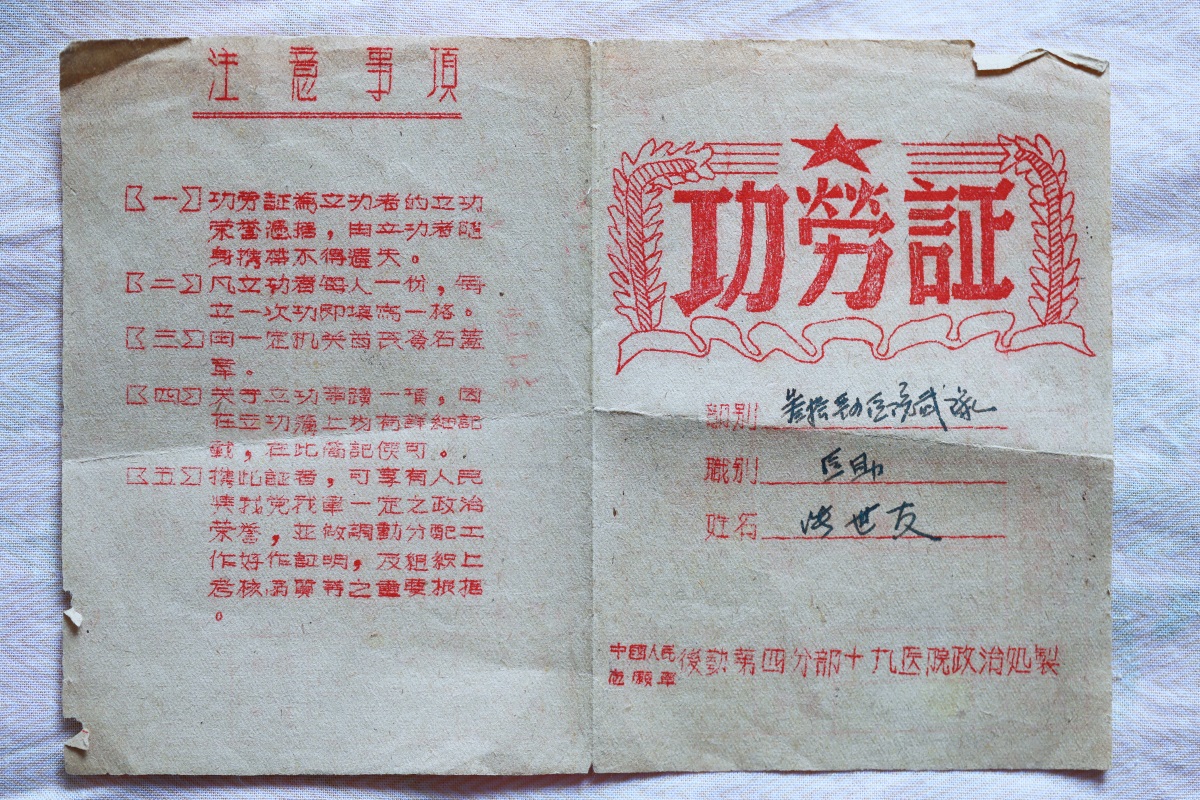 注意事項
【一】功劳証為立功者的立功
荣誉憑据，由立功者随
身携带不得遗失。
【二】凡立功者每人一份，每
立一次功即填寫一格。
【三】由一定机关首长簽名蓋
章。
【四】关于立功事蹟一項，因
在立功簿上均有詳細記
載，在此簡記便可。
【五】携此証者，可享有人民
我党我軍一定之政治
荣誉，並做調動分配工
作好作証明，及組織上
考核品質等之重要根据
。
功勞証
部别
職别 医助
姓名 洪世友
中國人民
志願軍
後勤第四分部十九医院政治処製